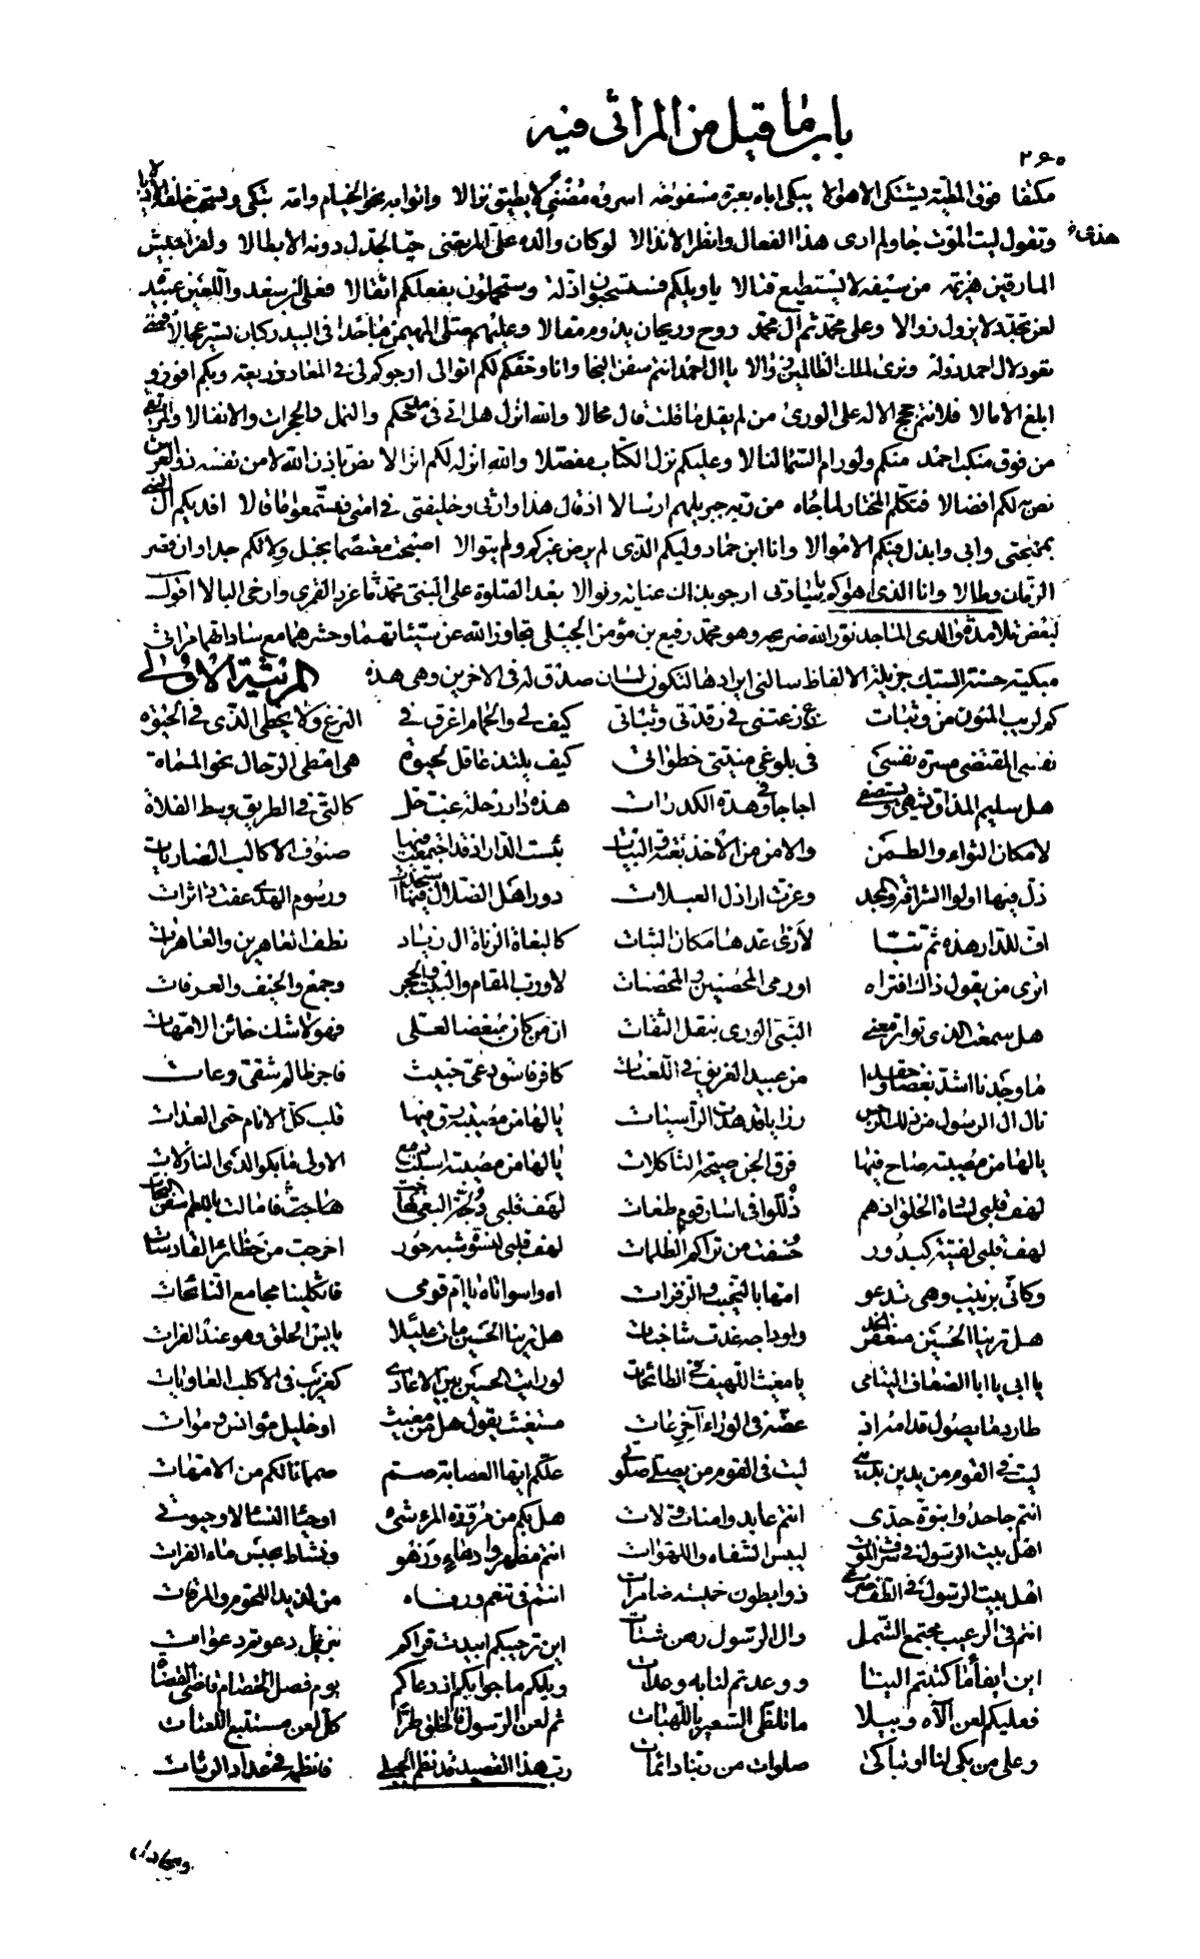 باب ما قيل من المراثى فيه
٢٩٠
مكتفا فوق المطية يشتكى الاهوالا يبكى اباه بعبرة مسفوحة اسروه مضنى لا يطيق نزالا واتوا به نحو الخيام وامه تبكى وتسحب خلفه الاذيالا
وتقول ليت الموت جاء ولم ارى هذا الفعال وانظر الانذالا لو كان والده على المرتضى حيا لجدل دونه الابطالا ولفر جيش
المارقين هزيمة من سيفه لا يستطيع قتالا يا ويلكم فستسحبون اذلة وستحملون بفعلكم اثقالا فعلى ابن سعد واللعين عبيده
لعن تجدد لا يزول زوالا وعلى محمد ثم آل محمد روح وريحان يدوم مقالا وعليهم صلى المهيمن ما حدا فى البيد ركبان تسير عجالا فمتى
تعود لال احمد دولة ونرى لملك الظالمين زوالا يا آل احمد انتم سفن النجا وانا وحقكم لكم اتوالى ارجوكم لى فى المعاد ذريعة وبكم افوز و
ابلغ الامالا فلانتم حجج الاله على الورى من لم يقل ما قلت قال محالا والله انزل هل اتى فى مدحكم والنمل والحجرات والانفالا والمرتقى
من فوق منكب احمد منكم ولو رام السما لنالا وعليكم نزل الكتاب مفصلا والله انزله لكم انزالا نص باذن الله لا من نفسه ذو العرش
نص به لكم افضالا فتكلم المختار لما جاءه من ربه جبريلهم ارسالا اذ قال هذا وارثى وخليفتى فى امتى فتسمعوا ما قالا افديكم آل النبى
بمهجتى وابى وابذل فيكم الاموالا وانا ابن حماد وليكم الذى لم يرض غيركم ولم يتوالا اصبحت معتصما بحبل ولائكم جدا وان قصر
الزمان وطالا وانا الذى اهواكم يا سادتى ارجو بذاك عناية ونوالا بعد الصلوة على النبى محمد ما غرد القمرى وارخى البالا اقول
لبعض تلامذة والدى الماجد نور الله ضريحه وهو محمد رفيع بن مؤمن الجيلى تجاوز الله عن سيئاتهما وحشرهما مع ساداتهما مراثى
مبكية حسنة السبك جزيلة الالفاظ سالنى ايرادها لتكون لسان صدق له فى الاخرين وهى هذه المرثية الاولى
كم لريب المنون من وثبات زعزعتنى فى رقدتى وثباتى كيف لى والحمام اغرق فى النزع ولا يخطى الذى فى الحيوة
نفسى المقتضى مسرة نفسى فى بلوغى منيتى خطواتى كيف يلتذ عاقل لحيوة هى امطى الرحال نحو الممات
هل سليم المذاق يشتهى ويستصفى اجاجا فى هذه الكدرات هذه دار رحلة غب حل كالتى فى الطريق وسط الفلاة
لا مكان الثواء والطمن والامن من الاخذ بغتة والبيات بئست الدار اذ قد اجتمعت فيها صنوف الاكالب الضاريات
ذل فيها اولوا الشرافة والمجد وعزت اراذل العبلات دور اهل الضلال فيها استجدت ورسوم الهدى عفت داثرات
اف للدار هذه ثم تبا لا ارى عندها مكان الثبات كالبغاة الزناة ال زياد نطف العاهرين والعاهرات
اترى من يقول ذاك افتراه اورمى المحصنين والمحصنات لا ورب المقام والبيت والحجر وجمع والخيف والعرفات
هل سمعت الذى تواتر معنى النبى الورى بنقل الثقات ان من كان مبغضا لعلى فهو لا شك خائن الامهات
ما وجدنا اشد بغضا وحقدا من عبيد الغريق فى اللعنات كافر فاسق دعى خبيث فاجر ظالم شقى وعات
نال ال الرسول من ذلك الرجس رزايا قد هدت الراسيات يا لها من مصيبة رق فيها قلب كل الانام حتى العدات
يا لها من مصيبة صاح فيها فرق الجن صيحة الثاكلات يا لها من مصيبة اسبلت دمع الاولى ما بكوا لدى النازلات
لهف قلبى لشاة الخلق اذ هم ذللوا فى اسار قوم طغات لهف قلبى وبحر البغى هاجت فامالت بالظلم سفن النجات
لهف قلبى لفتية كبدور خسفت من تراكم الظلمات لهف قلبى لنسوة شبه حور اخرجت من حظائر القادسات
وكانى بزينب وهى تدعو امها بالنحيب والزفرات اه واسواتاه يا ام قومى فاثكلينا مجامع النائحات
هل ترينا الحسين منعفر الخد واوداجه غدت شاخبات هل ترينا الحسين مات عليلا يابس الحلق وهو عند الفرات
يا ابى يا ابا الضعاف اليتامى يا مغيث اللهيف فى الطائحات لو رايت الحسين بين الاعادى كغريب فى الاكلب العاويات
مستغيث يقول هل من مغيث او خليل مؤانس ومواث
ليت فى القوم من يدين بدينى ليت فى القوم من يصلى صلوتى علكم ايها العصابة صم
انتم جاحدوا بنوة جدى انتم عابدوا منات ولات
اهل بيت الرسول فى ليبس الشفاه واللهوات
اهل بيت الرسول فى الطف صرعى ذوا بطون خميصة ضامرات انتم فى تنعم ورفاه من لذيذ اللحوم والمرقات
انتم فى الرحيب مجتمع الشمل وال الرسول رهن شتات اين ترحيبكم ابيدت قراكم
اين ايفاء ما كتبتم الينا ووعدتم لنا به وعدات ويلكم ما جوابكم اذ دعاكم يوم فصل الخصام قاضى القضاة
فعليكم لعن الاله وبيلا ما تلظى السعير باللهبات ثم لعن الرسول فالخلق طرا كل لعن مستتبع اللعنات
وعلى من بكى لنا او تباكى صلوات من ربنا دائمات رب هذا القصيد قد نظم الجيلى فانظمه فى عداد الرثات